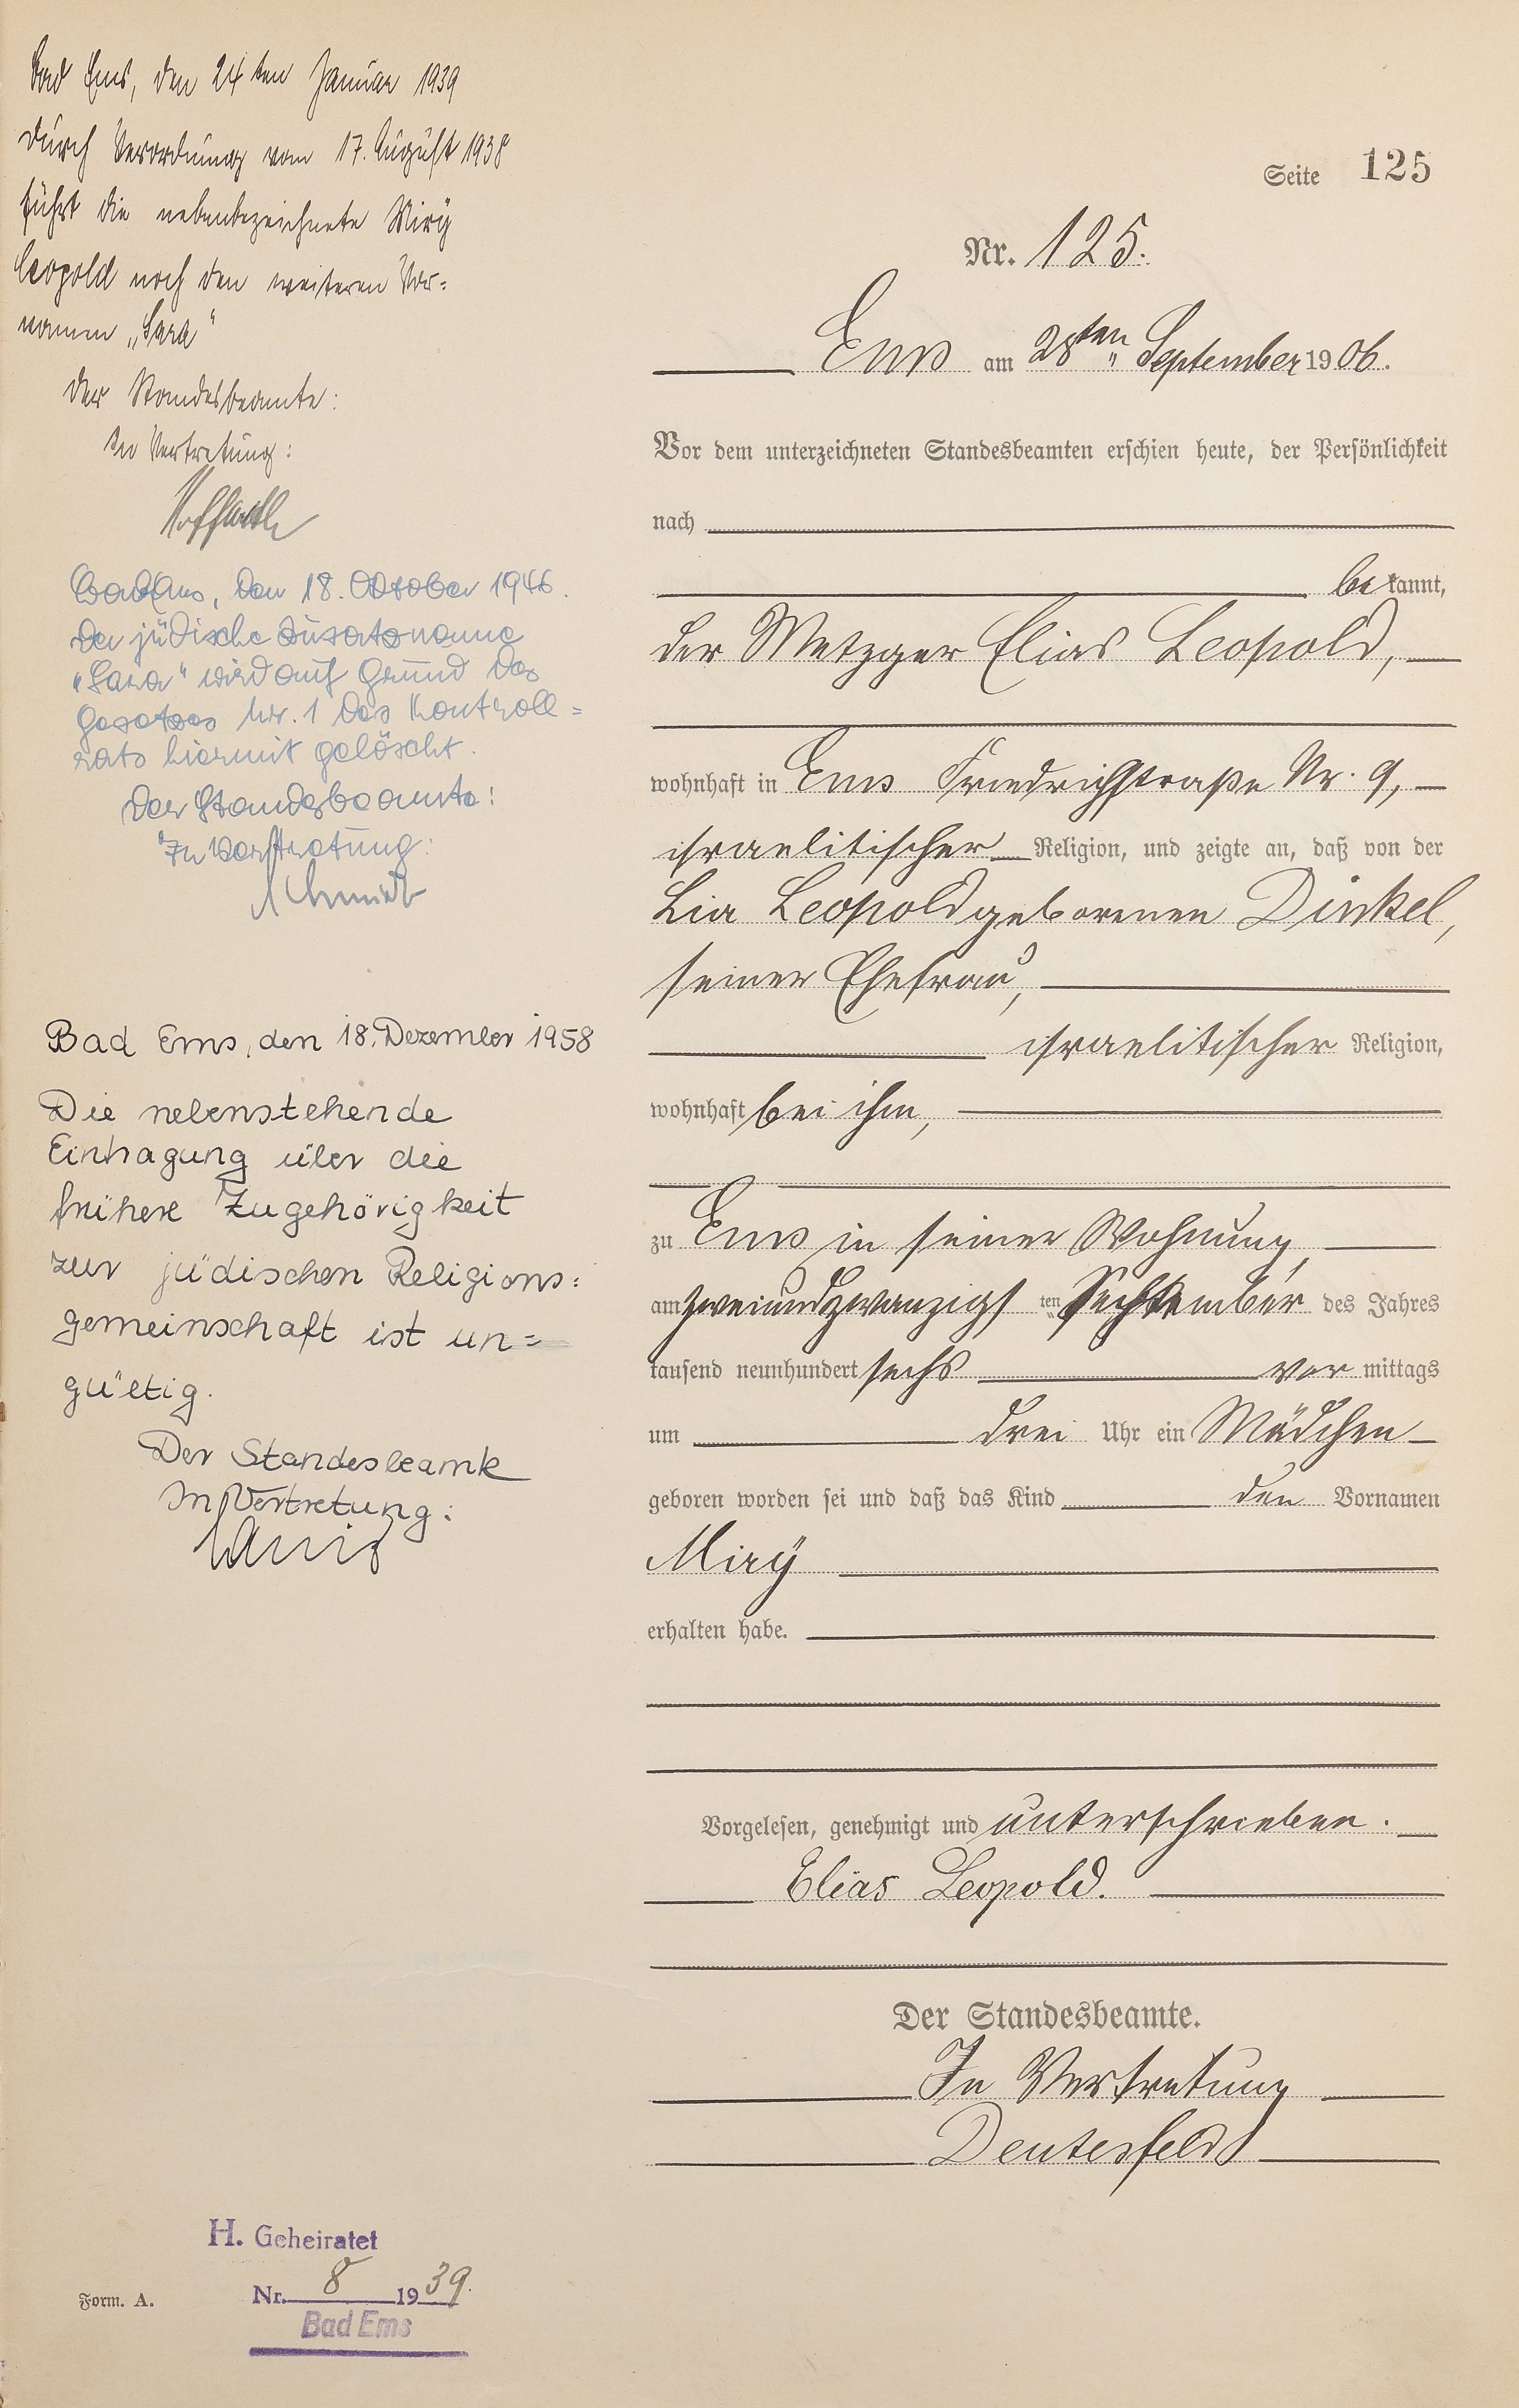 Bad Ems, den 24ten Januar 1939
Durch Verordnung vom 17. August 1938
führt die nebenbezeichnete Mirÿ
Leopold noch den weiteren Vor=
namen „Sara“
Der Standesbeamte:
In Vertretung:
Bad Ems, den 18. Oktober 1946.
Der jüdische Zusatzname
„Sara“ wird auf Grund des
Gesetzes Nr. 1 des Kontroll=
rats hiermit gelöscht.
Der Standesbeamte:
In Vertretung:
Schmidt
Bad Ems, den 18. Dezember 1958
Die nebenstehende
Eintragung über die
frühere Zugehörigkeit
zur jüdischen Religions=
gemeinschaft ist un=
gültig.
Der Standesbeamte
In Vertretung:
H. Geheiratet
Nr. 8 1939.
Bad Ems
Form. A.
Seite 125
Nr. 125.
Ems am 28ten September 1906.
Vor dem unterzeichneten Standesbeamten erschien heute, der Persönlichkeit
nach
bekannt,
der Metzger Elias Leopold,
wohnhaft in Ems Friedrichstraße Nr. 9,
israelitischer Religion, und zeigte an, daß von der
Lia Leopold geborenen Dinkel,
seiner Ehefrau,
israelitischer Religion,
wohnhaft bei ihm,
zu Ems in seiner Wohnung,
am zweiundzwanzigsten September des Jahres
tausend neunhundert sechs vormittags
um drei Uhr ein Mädchen
geboren worden sei und daß das Kind den Vornamen
Mirÿ
erhalten habe.
Vorgelesen, genehmigt und unterschrieben.
Elias Leopold.
Der Standesbeamte.
In Vertretung
Deutesfeld